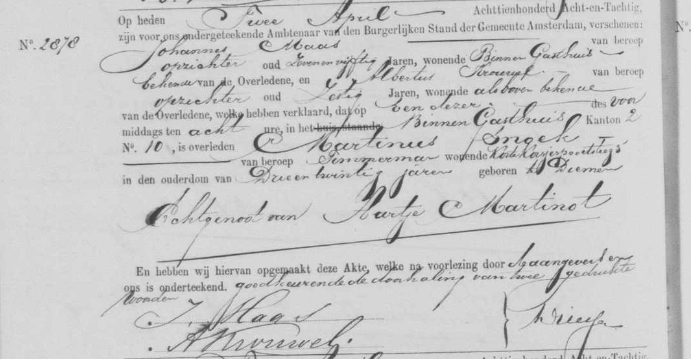 Achttienhonderd Acht-en-Tachtig,
Op heden Twee April
zijn voor ons ondergeteekende Ambtenaar van den Burgerlijken Stand der Gemeente Amsterdam, verschenen:
No. 2878
Johannes Maas van beroep
oprichter oud Zevenenvijftig Jaren, wonende Binnen Gasthuis
bekende van de Overledene, en Albertus van beroep
oprichter oud Zestig Jaren, wonende als boven bekende
van de Overledene, welke hebben verklaard, dat op Een dezer des voor
middags ten acht ure, in het huis staande Binnen Gasthuis Kanton 2
No. 10, is overleden Martinus Engel
van beroep Timmerman wonende
in den ouderdom van Drie en twintig jaren geboren te Diemen
Echtgenoot van Aartje Martinot
En hebben wij hiervan opgemaakt deze Akte, welke na voorlezing door de aangevers en
ons is onderteekend. goedkeurende de doorhaling van twee gedrukte
woorden
J. Maas
A Krouwel.
Achttienhonderd Acht-en-Tachtig